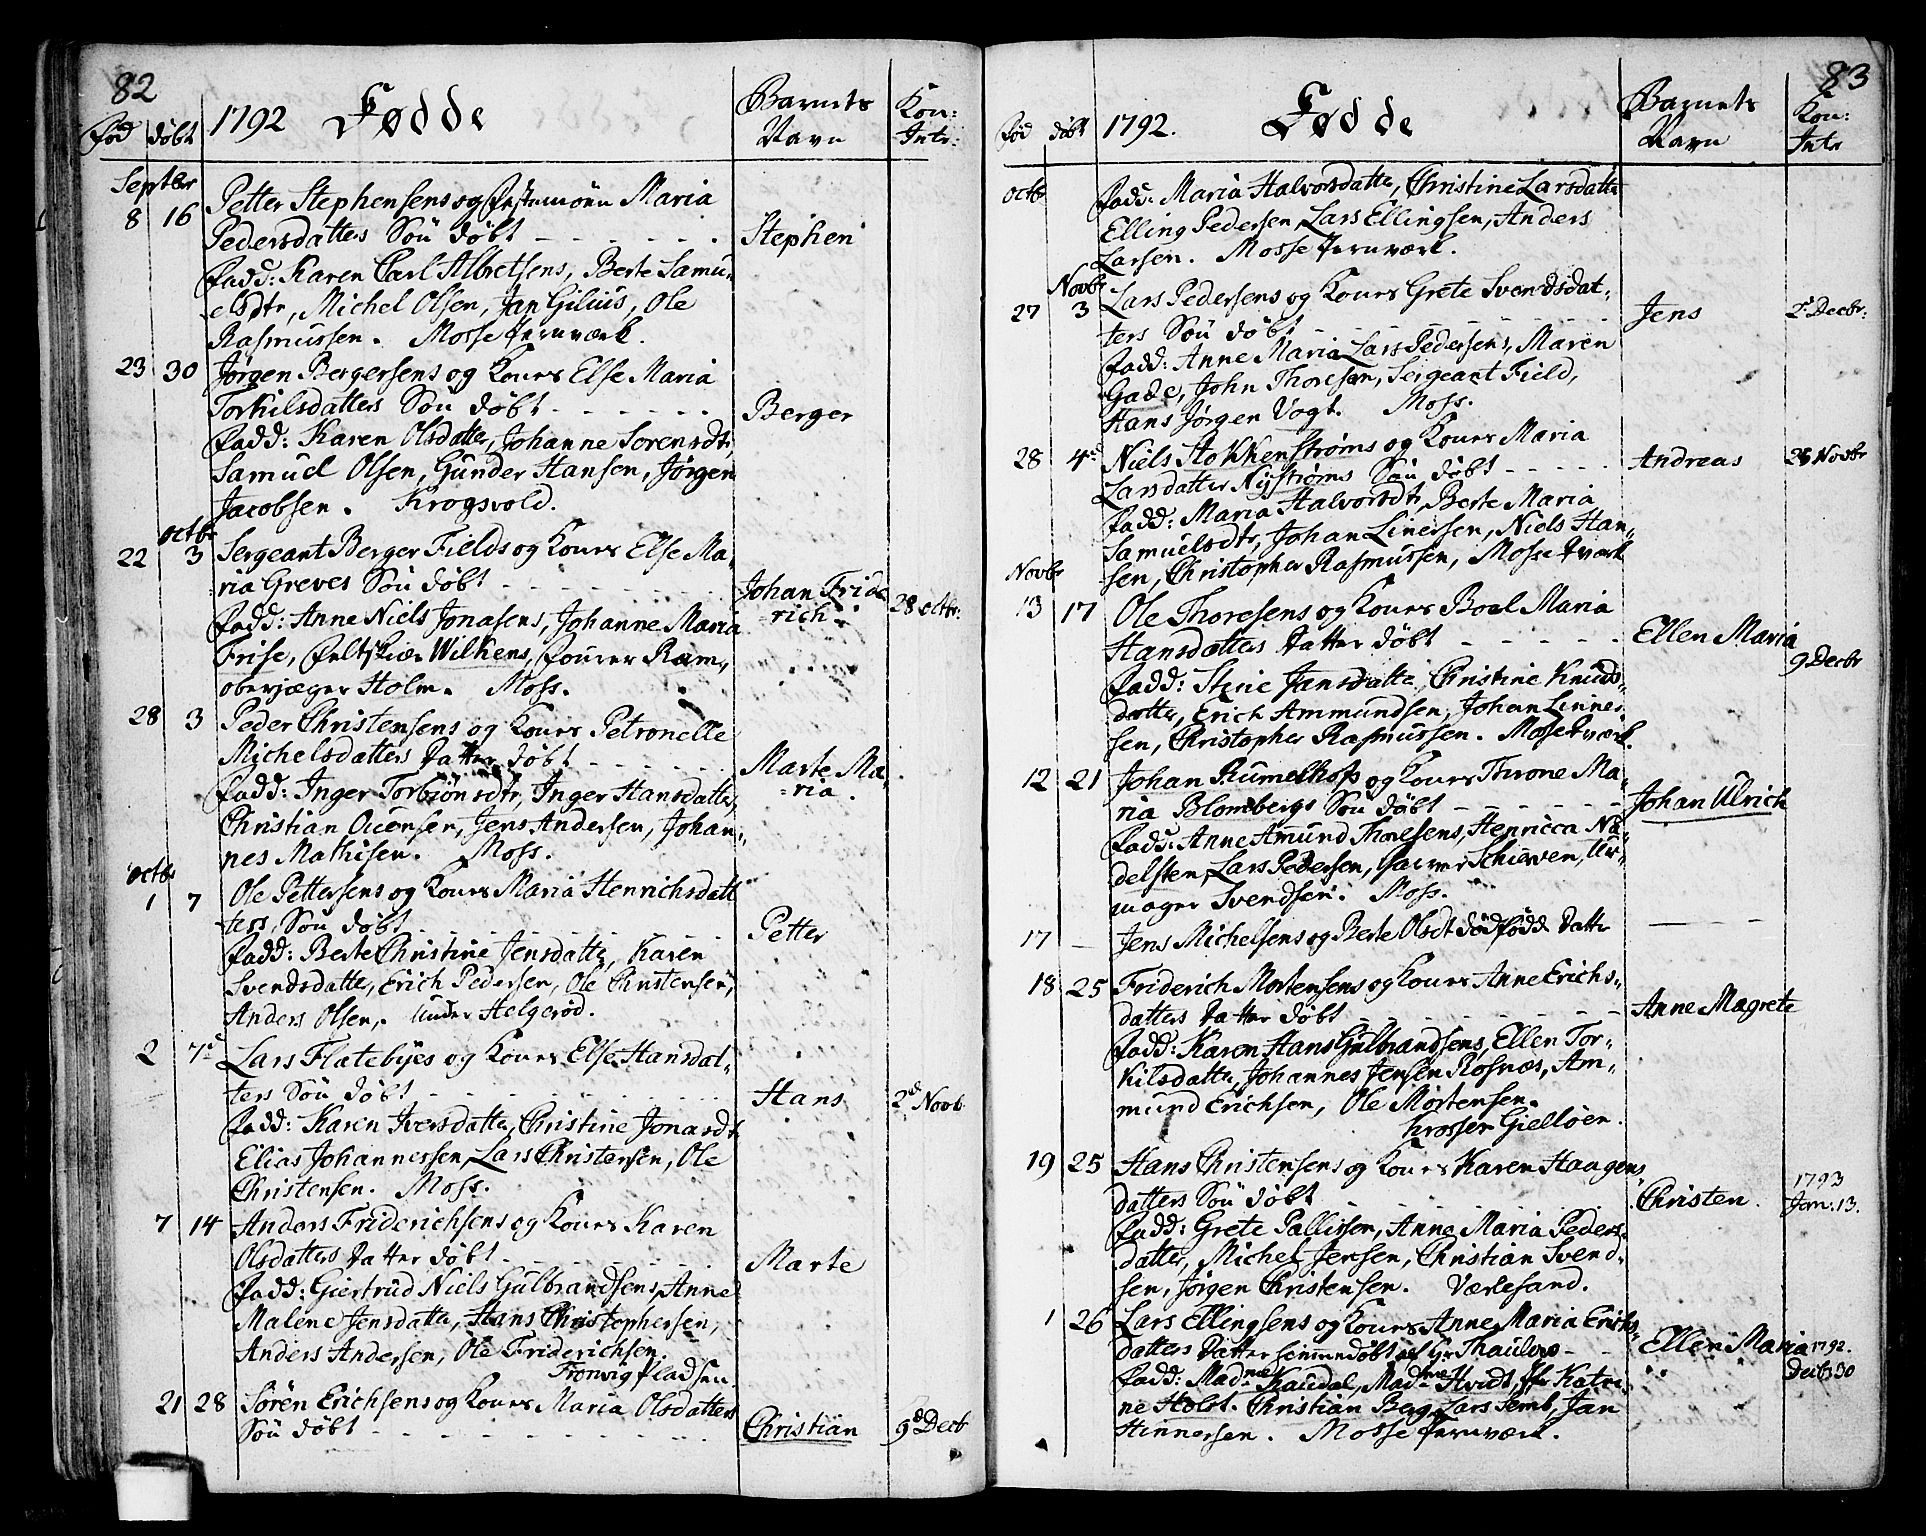 82
Fød døbt 1792 Fødde Barnets Navn Kon: Intr:
Septbr
8 16 Petter Stephensens og Festemöen Maria
Pedersdatters Sön døbt Stephen
Fadd: Karen Carl Albretsens, Berte Samu-
elsdtr, Michel Olsen, Jan Gilius, Ole
Rasmussen. Mosse Jernværk.
23 30 Jørgen Bergersens og Kones Else Maria
Torkilsdatters Sön døbt Berger
Fadd: Karen Olsdatter, Johanne Sorensdtr,
Samuel Olsen, Gunder Hansen, Jørgen
Jacobsen. Krogsvold.
octbr
22 3 Sergeant Berger Fields og Kones Else Ma-
ria Greves Sön døbt Johan Fride-
rich. 28 octbr:
Fadd: Anne Niels Jonasens, Johanne Maria
Frise, Feltskiær Wilkens, Fourer Ram,
oberjæger Holm. Moss.
28 3 Peder Christensens og Kones Petronelle
Michelsdatters Datter døbt Marte Ma-
ria.
Fadd: Inger Torbiönsdtr, Inger Hansdatter,
Christian Ouensen, Jens Andersen, Johan-
nes Mathisen. Moss.
octbr
1 7 Ole Pettersens og Kones Maria Henrichsdatt
ters Sön døbt Petter
Fadd: Berte Christine Jensdatter, Karen
Svendsdatter, Erich Pedersen, Ole Christensen,
Anders Olsen, under Helgerød.
2 7d Lars Flatebyes og Kones Else Hansdat-
ters Sön døbt Hans 2d Novb
Fadd: Karen Iversdatter, Christine Jonasdtr
Elias Johannessen, Lars Christensen, Ole
Christensen. Moss.
7 14 Anders Friderichsens og Kones Karen
Olsdatters Datter døbt Marte
Fadd: Giertrud Niels Gulbrandsens, Anne
Malene Jensdatter, Hans Christophersen,
Anders Andersen, Ole Friderichsen.
Fronvig Pladsen.
21 28 Sören Erichsens og Kones Maria Olsdatters
Sön døbt Christian 9d Decb
83
Fød døbt 1792. Fødde Barnets Navn Kon: Intr
octbr
Fadd: Maria Halvorsdatter, Christine Larsdatter
Elling Pedersen, Lars Ellingsen, Anders
Larsen. Mosse Jernværk.
Novbr
27 3 Lars Pedersens og Kones Grete Svendsdat-
ters Sön døbt Jens 2d Decbr:
Fadd: Anne Maria Lars Pedersens, Maren
Gade, John Thoresen, Sergeant Field,
Hans Jørgen Vogt. Moss.
28 4d Niels Stokkenstrøms og Kones Maria
Larsdatter Nystrøms Sön døbt Andreas 28 Novbr
Fadd: Maria Halvorsdtr, Berte Maria
Samuelsdtr, Johan Linersen, Niels Han-
sen, Christopher Rasmussen, Mosse Jværk
Novbr
13 17 Ole Thoresens og Kones Boel Maria
Hansdatters Datter døbt Ellen Maria
9 Decbr
Fadd: Stine Jansdatter, Christine Knuds-
datter, Erich Ammundsen, Johan Linner-
sen, Christopher Rasmussen. Mosse Jværk.
12 21 Johan Rumelhofs og Kones Throne Ma-
ria Blombergs Sön døbt Johan Ulrich
Fadd: Anne Amund Thoresens, Henricca Na-
delsten, Lars Pedersen, Schieven, Ur-
mager Svendsen. Moss.
17 — Jens Michelsens og Berte Olsdt dödfödd Datter —
18 25 Friderich Mortensens og Kones Anne Erichs-
datters Datter döbt Anne Magrete
Fadd: Karen Hans Gulbrandsens, Ellen Tor-
kilsdatter, Johannes Jensen Rosnæs, Am-
mund Erichsen, Ole Mortensen.
Krosser Gielløen.
19 25 Hans Christensens og Kones Karen Haagens
datters Sön döbt Christen. 1793 Jan: 13.
Fadd: Grete Pallesen, Anne Maria Peders-
datter, Michel Jensen, Christian Svend-
sen, Jörgen Christensen. Værlesand.
1 26 Lars Ellingsens og Kones Anne Maria Erichs-
datters Datter hiemmedöbt af Hr Thaulow Ellen Maria 1792. Decbr 30
Fadd: Madme Kaudal, Madme Hvidt, Jfr Katri-
ne Holst. Christian Berg, Lars Semb, Jan
Hinnersen. Mosse Jernværk.